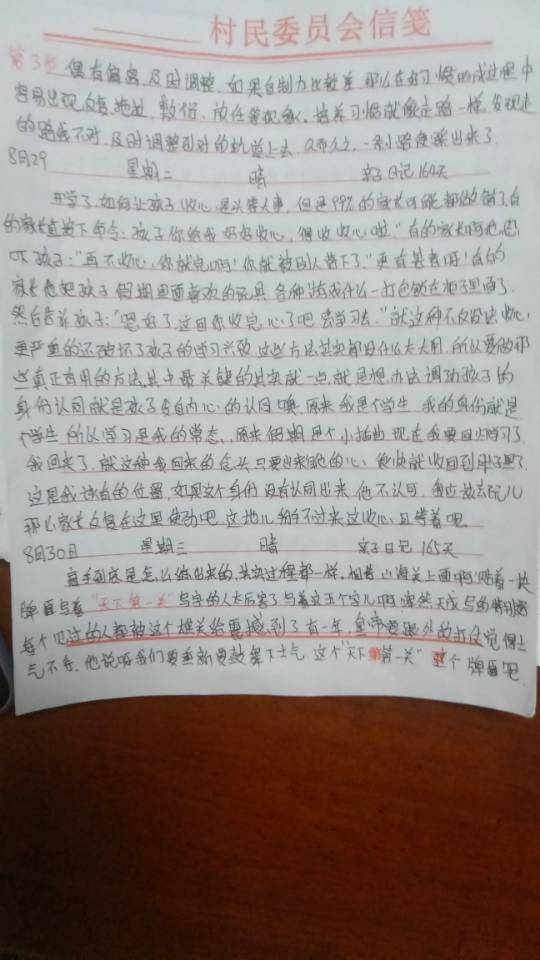 村民委员会信笺
第3页 偶有偏离,及时调整,如果自制力比较差,那么在好习惯的成过程中
容易出现反复拖拉、敷衍、放任等现象。培养习惯就像走路一样,发现走
的路线不对,及时调整到对的轨道上去,久而久之,一条小路便踩出来了。
8月29 星期二 晴 亲子日记164天
开学了,如何让孩子收心,是头等大事,但是99%的家长可能都做错了,有
的家长直接下命令:孩子你给我好好收心,得收收心啦!"有的家长呵
吓孩子:"再不收心,你就完啊!你就被别人落下了。"更有甚者呀!有的
家长把孩子假期里面喜欢的玩具,各种游戏什么一打包锁在柜子里面了。
然后告诉孩子:"吧好了,这回你收完心了吧,去学习去。"就这种不仅没法收心,
更严重的还破坏了孩子的学习兴致,这些方法其实都没什么太大用,所以要做那
些真正有用的方法,其中最关键的其实就一点,就是想办法调动孩子的
身份认同,就是孩子会自内心的认同噢,原来我是个学生,我的身份就是
个学生,所以学习是我的常态,原来假期是个小插曲,现在我要回归学习了,
我回来了,就这种我回来的念头,只要出来,他的心,很快就收回到
这是我该有的位置,如果这个身份没有认同出来,他不认可,我应该去玩儿
那么家长反复在这里使劲吧,这地儿纠不过来,这收心,且等着吧。
8月30日 星期三 晴 亲子日记165天
到底是怎么练出来的,其实过程都一样,相传山海关上面啊,贴着一块
牌匾写着"天下第一关"写字的人太厉害了,写着这五个字儿啊,浑然天成,写的特别好
每个见过的人都被这个雄关给震撼到了,有一年,皇帝要跟外敌打仗,觉得士
气不行,他说呀我们要重新要鼓舞下士气,这个"天下第一关"这个牌匾吧